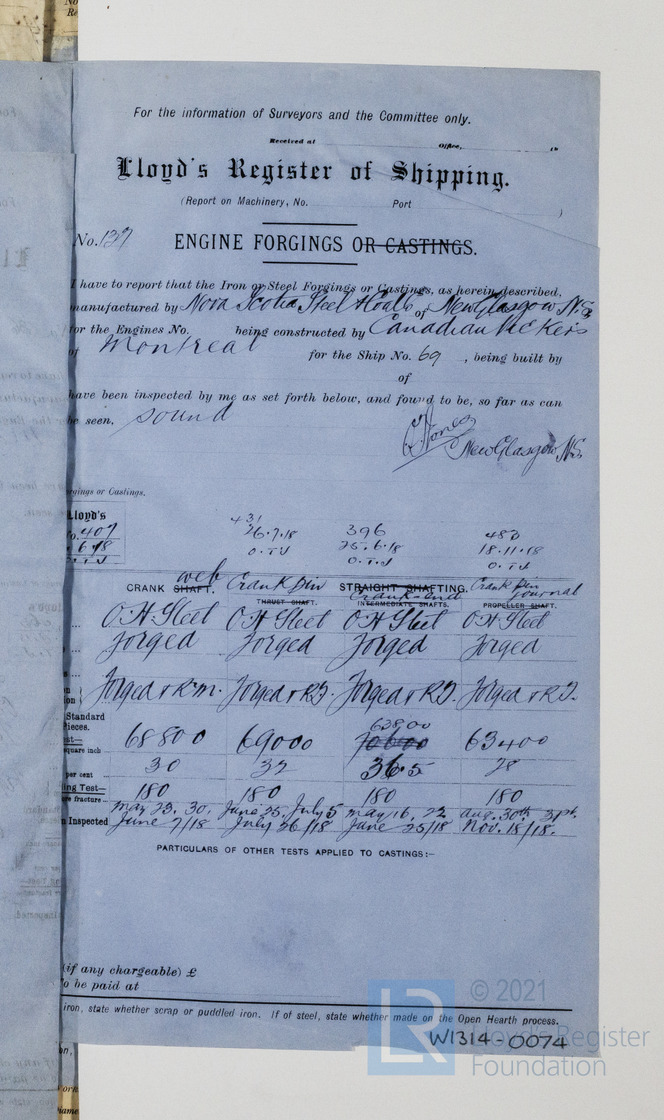 For the information of Surveyors and the Committee only.
Received at Office, 19
Lloyd's Register of Shipping.
(Report on Machinery, No. Port )
No. 137
ENGINE FORGINGS OR CASTINGS.
I have to report that the Iron or Steel Forgings or Castings, as herein described,
manufactured by Nova Scotia Steel & Coal Co of New Glasgow N.S.
for the Engines No. being constructed by Canadian Vickers
of Montreal for the Ship No. 69, being built by
of
have been inspected by me as set forth below, and found to be, so far as can
be seen, sound
Jones
New Glasgow N.S.
rgings or Castings.
Lloyd's
o. 407
6.18
431
26.7.18
O.T.J
396
25.6.18
O.T.J
483
18.11.18
O.T.J
CRANK SHAFT. web Crank Pin STRAIGHT SHAFTING. Crank Pin journal
THRUST SHAFT. INTERMEDIATE SHAFTS. PROPELLER SHAFT.
O H Steel O H Steel O H Steel O H Steel
Forged Forged Forged Forged
Forged & R.M. Forged & R.T. Forged & R.T. Forged & R.T.
Standard
ieces.
63800
68800 69000 70600 63400
square inch
per cent 30 32 36.5 28
ing Test—
180 180 180 180
re fracture
May 23, 30, June 25, July 5 May 16, 22 Aug. 30th 31st.
n Inspected June 7/18 July 26/18 June 25/18 Nov. 18/18.
PARTICULARS OF OTHER TESTS APPLIED TO CASTINGS:—
(if any chargeable) £
To be paid at
iron, state whether scrap or puddled iron. If of steel, state whether made on the Open Hearth process.
W1314-0074
LR
© 2021
Lloyd's Register
Foundation